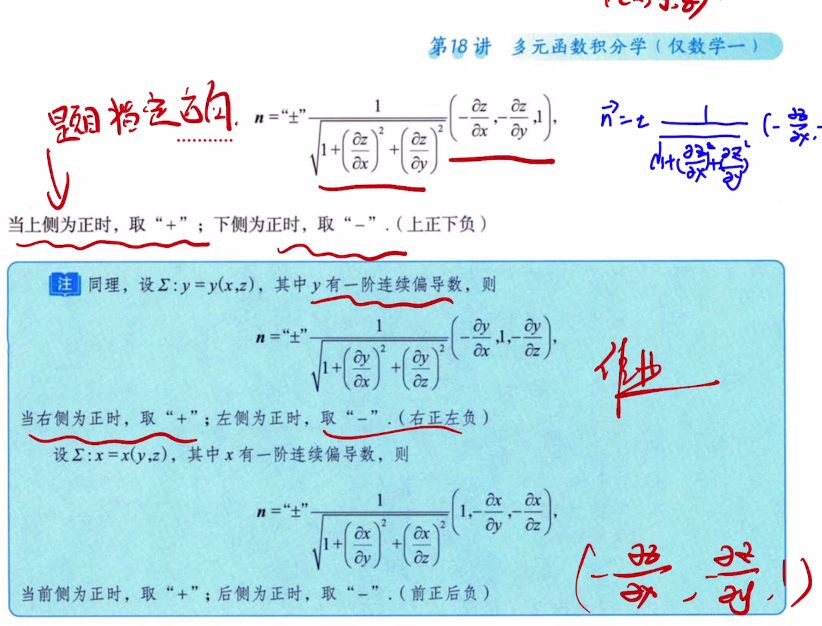 第18讲 多元函数积分学(仅数学一)
题目指定方向.
n="±" 1/√(1+(∂z/∂x)²+(∂z/∂y)²) (-∂z/∂x,-∂z/∂y,1),
当上侧为正时，取“+”；下侧为正时，取“-”.(上正下负)
注 同理，设Σ:y=y(x,z)，其中y有一阶连续偏导数，则
n="±" 1/√(1+(∂y/∂x)²+(∂y/∂z)²) (-∂y/∂x,1,-∂y/∂z),
当右侧为正时，取“+”；左侧为正时，取“-”.(右正左负)
设Σ:x=x(y,z)，其中x有一阶连续偏导数，则
n="±" 1/√(1+(∂x/∂y)²+(∂x/∂z)²) (1,-∂x/∂y,-∂x/∂z),
当前侧为正时，取“+”；后侧为正时，取“-”.(前正后负)
(-∂z/∂x, -∂z/∂y, 1)